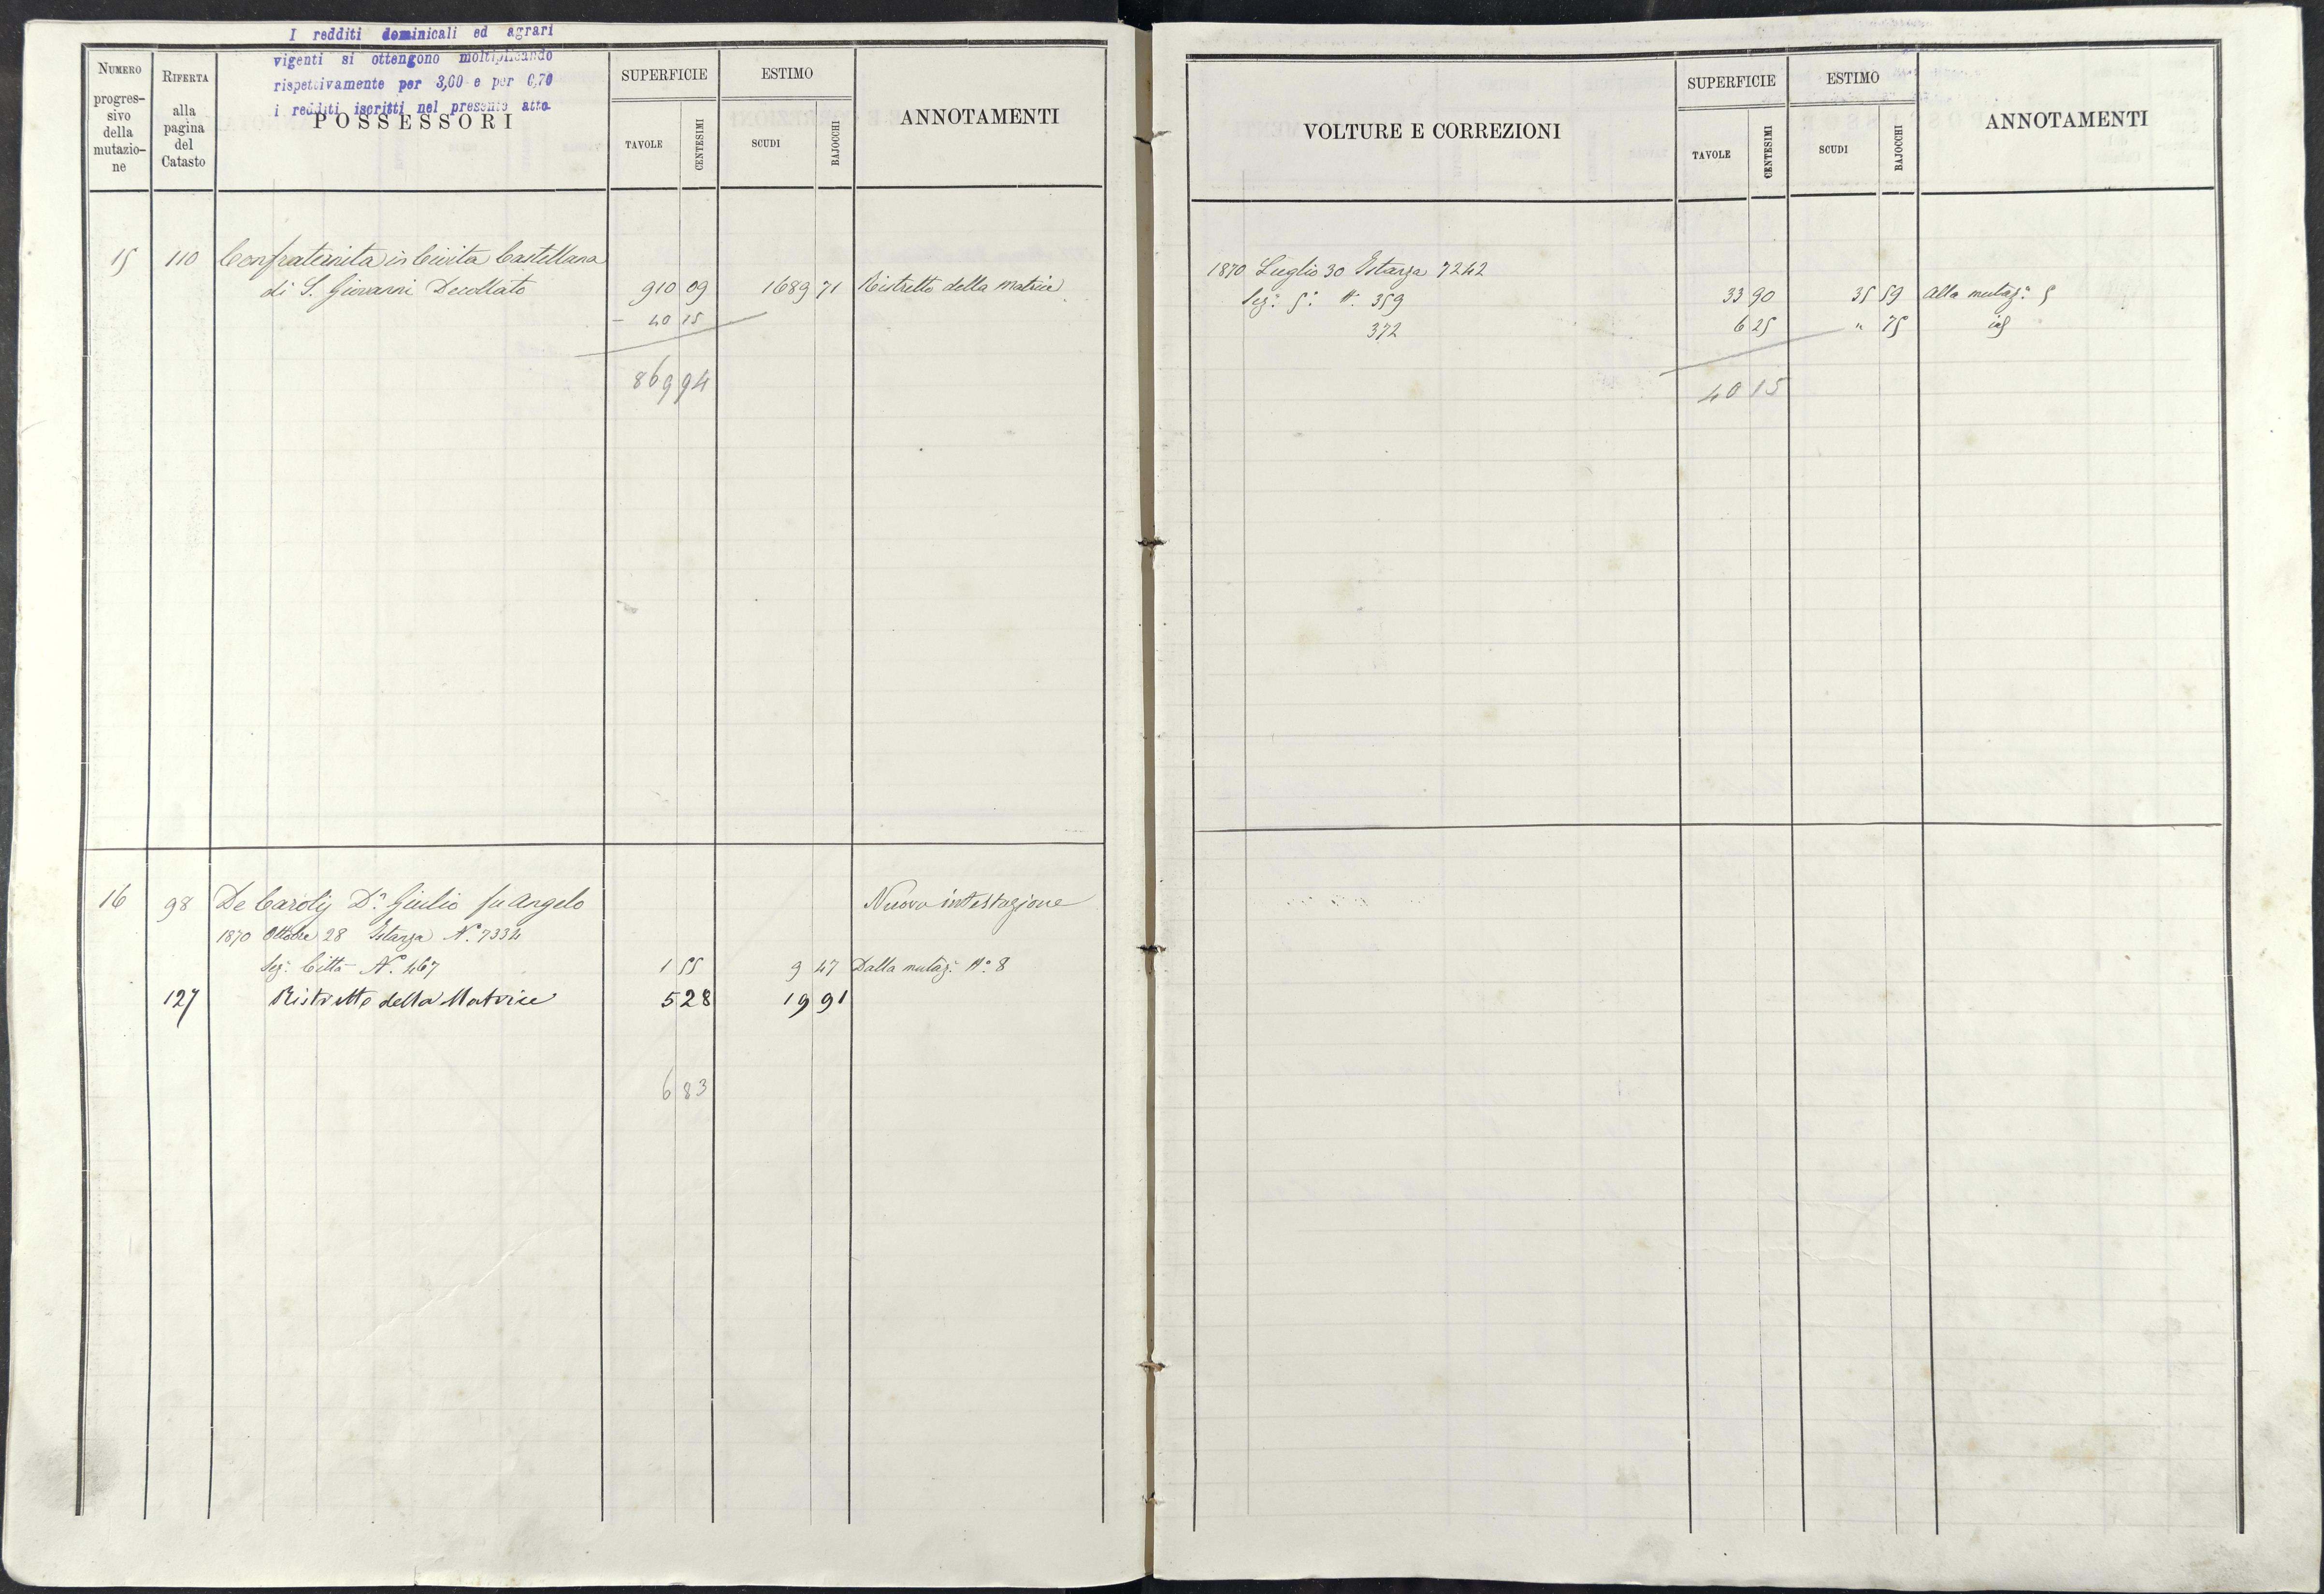 I redditi dominicali ed agrari
vigenti si ottengono moltiplicando
rispettivamente per 3,60 e per 6,70
i redditi iscritti nel presente atto
NUMERO
progres-
sivo
della
mutazio-
ne
RIFERTA
alla
pagina
del
Catasto
POSSESSORI
SUPERFICIE
TAVOLE
CENTESIMI
ESTIMO
SCUDI
BAJOCCHI
ANNOTAMENTI
15 110 Confraternita in Civita Castellana
di S. Giovanni Decollato 910 09 1689 71 Ristretto della matrice
– 40 15
869 94
16 98 De Carolis Dr. Giulio fu Angelo Nuova intestazione
1870 Ottobre 28 Istanza N. 7334
Sez: Città N. 467 1 55 9 47 Dalla mutaz: No 8
127 Ristretto della Matrice 5 28 19 91
6 83
VOLTURE E CORREZIONI
SUPERFICIE
TAVOLE
CENTESIMI
ESTIMO
SCUDI
BAJOCCHI
ANNOTAMENTI
1870 Luglio 30 Istanza 7242
Sez: 5: N. 359 33 90 35 59 Alla mutaz: 5
372 6 25 " 75 id
40 15